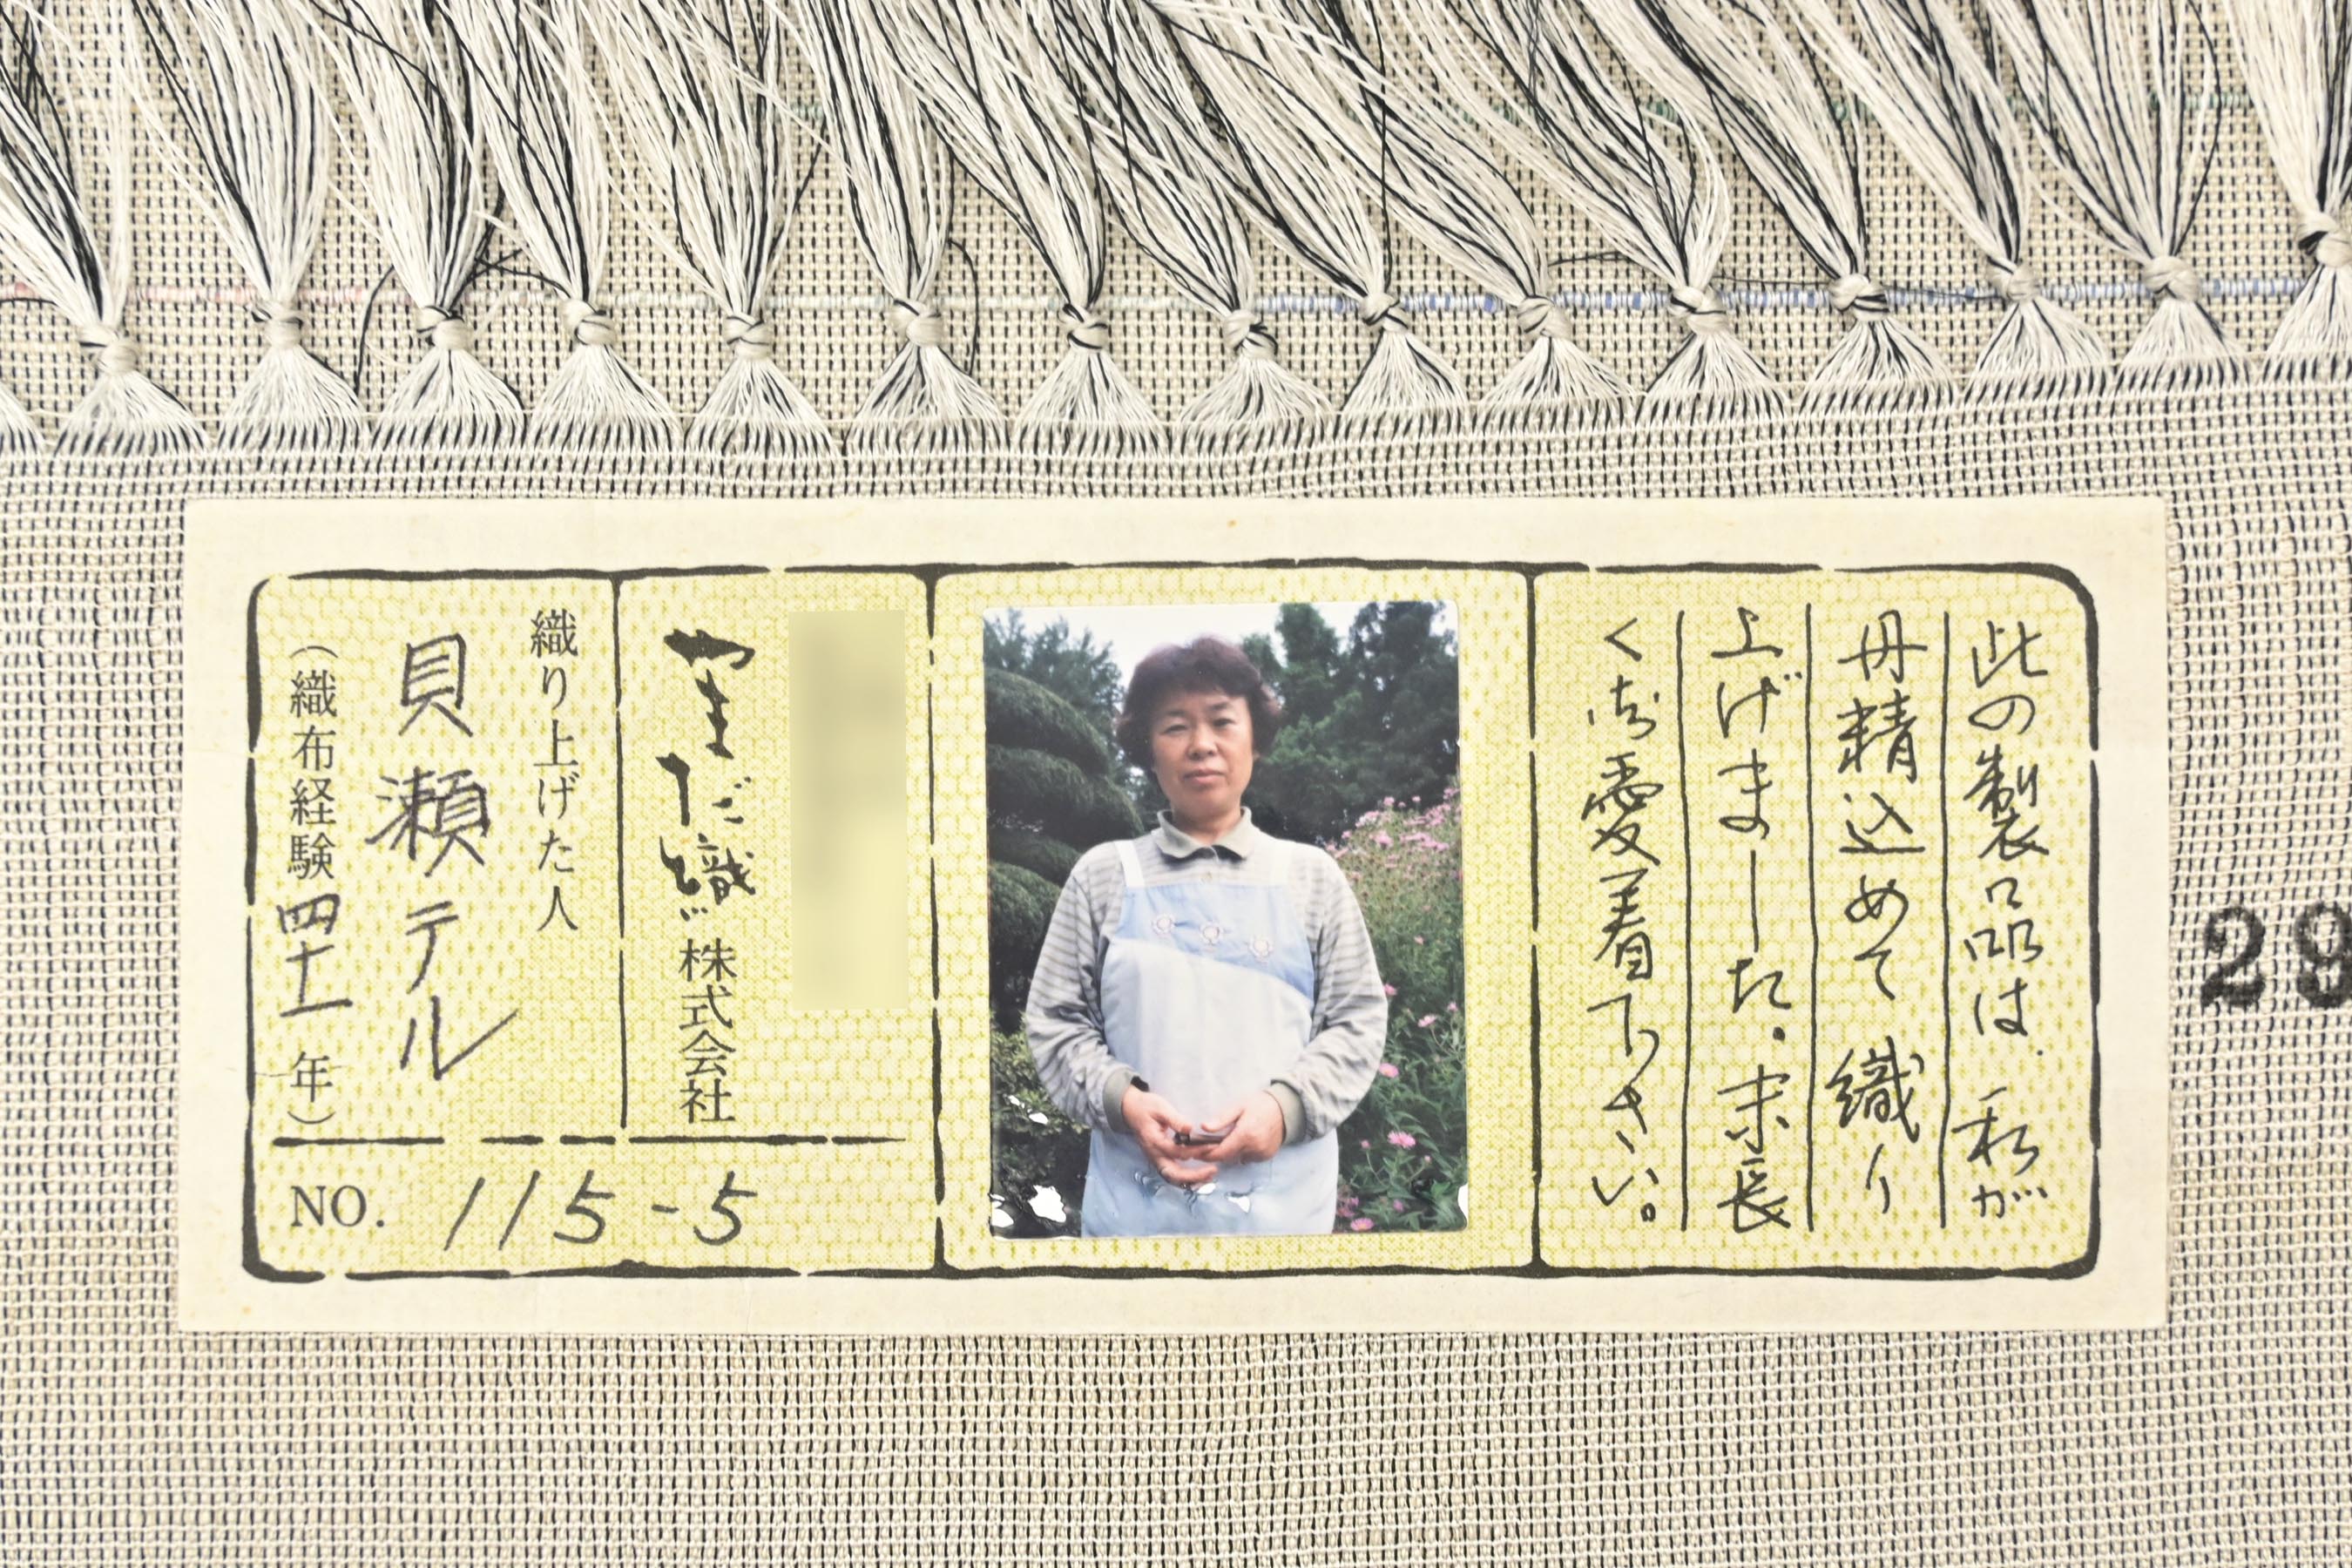 此の製品は、私が
丹精込めて織り
上げました。末長
く御愛着下さい。
やまだ織株式会社
織り上げた人
貝瀬テル
(織布経験四十一年)
NO. 115-5
29